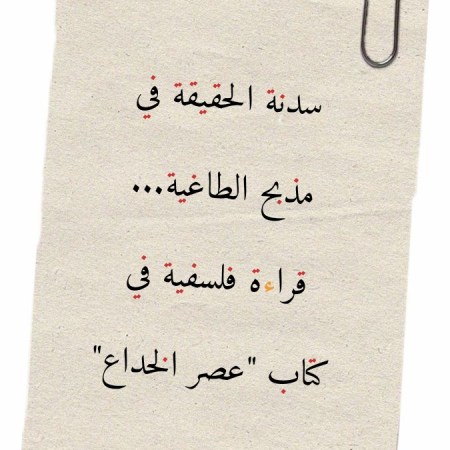 سدنة الحقيقة في
مذبح الطاغية...
قراءة فلسفية في
كتاب "عصر الخداع"